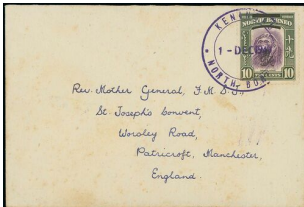 NORTH BORNEO
1-DEC
NORTH BO
10 10
Rev. Mother General, F.M.S.J.
St. Joseph's Convent,
Worsley Road,
Patricroft, Manchester,
England.